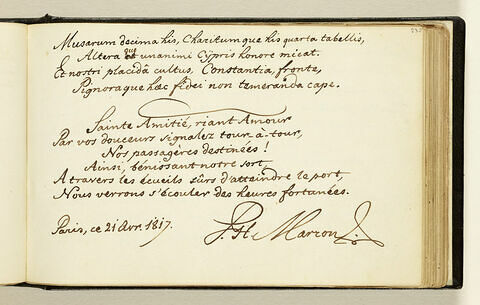 Musarum decima his, Charitumque his quarta tabellis,
Altera qui unanimi Cypris honore micat.
Et nostri placidâ cultus, Constantia, fronte,
Pignoraque hæc fidei non temeranda cape.
Sainte Amitié, riant Amour
Par vos douceurs signalez tour-à-tour,
Nos passagères destinées!
Ainsi, bénissant notre sort,
A travers les écueils sûrs d'atteindre le port,
Nous verrons s'écouler des heures fortunées.
Paris, ce 21 Avr. 1817.
P. H. Marron